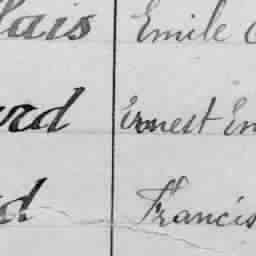 lais Emile
ard Ernest Em
d Francis